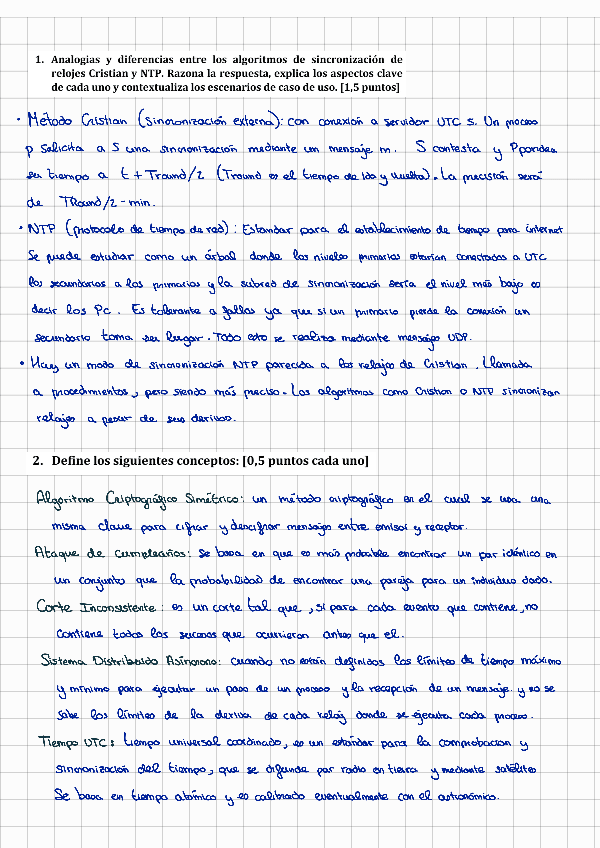 1. Analogías y diferencias entre los algoritmos de sincronización de
relojes Cristian y NTP. Razona la respuesta, explica los aspectos clave
de cada uno y contextualiza los escenarios de caso de uso. [1,5 puntos]
• Método Cristian (Sincronización externa): con conexión a servidor UTC S. Un proceso
p solicita a S una sincronización mediante un mensaje m. S contesta y P pondrá
su tiempo a t + Tround/2 (Tround es el tiempo de ida y vuelta). La precisión será
de TRound/2 - min.
• NTP (protocolo de tiempo de red): Estándar para el establecimiento de tiempo para internet
Se puede estudiar como un árbol donde los niveles primarios estarían conectados a UTC
los secundarios a los primarios y la subred de sincronización sería el nivel más bajo es
decir los Pc. Es tolerante a fallas ya que si un primario pierde la conexión un
secundario toma su lugar. Todo esto se realiza mediante mensajes UDP.
• Hay un modo de sincronización NTP parecida a los relojes de Cristian. Llamada
a procedimientos, pero siendo más preciso. Los algoritmos como Cristian o NTP sincronizan
relojes a pesar de sus derivas.
2. Define los siguientes conceptos: [0,5 puntos cada uno]
Algoritmo Criptográfico Simétrico: un método criptográfico en el cual se usa una
misma clave para cifrar y descifrar mensajes entre emisor y receptor.
Ataque de Cumpleaños: Se basa en que es más probable encontrar un par idéntico en
un conjunto que la probabilidad de encontrar una pareja para un individuo dado.
Corte Inconsistente: es un corte tal que, si para cada evento que contiene, no
contiene todos los sucesos que ocurrieron antes que el.
Sistema Distribuido Asíncrono: cuando no están definidos los límites de tiempo máximo
y mínimo para ejecutar un paso de un proceso y la recepción de un mensaje. y no se
sabe los límites de la deriva de cada reloj donde se ejecuta cada proceso.
Tiempo UTC: tiempo universal coordinado, es un estándar para la comprobación y
sincronización del tiempo, que se difunde por radio en tierra y mediante satélites
Se basa en tiempo atómico y es calibrado eventualmente con el astronómico.